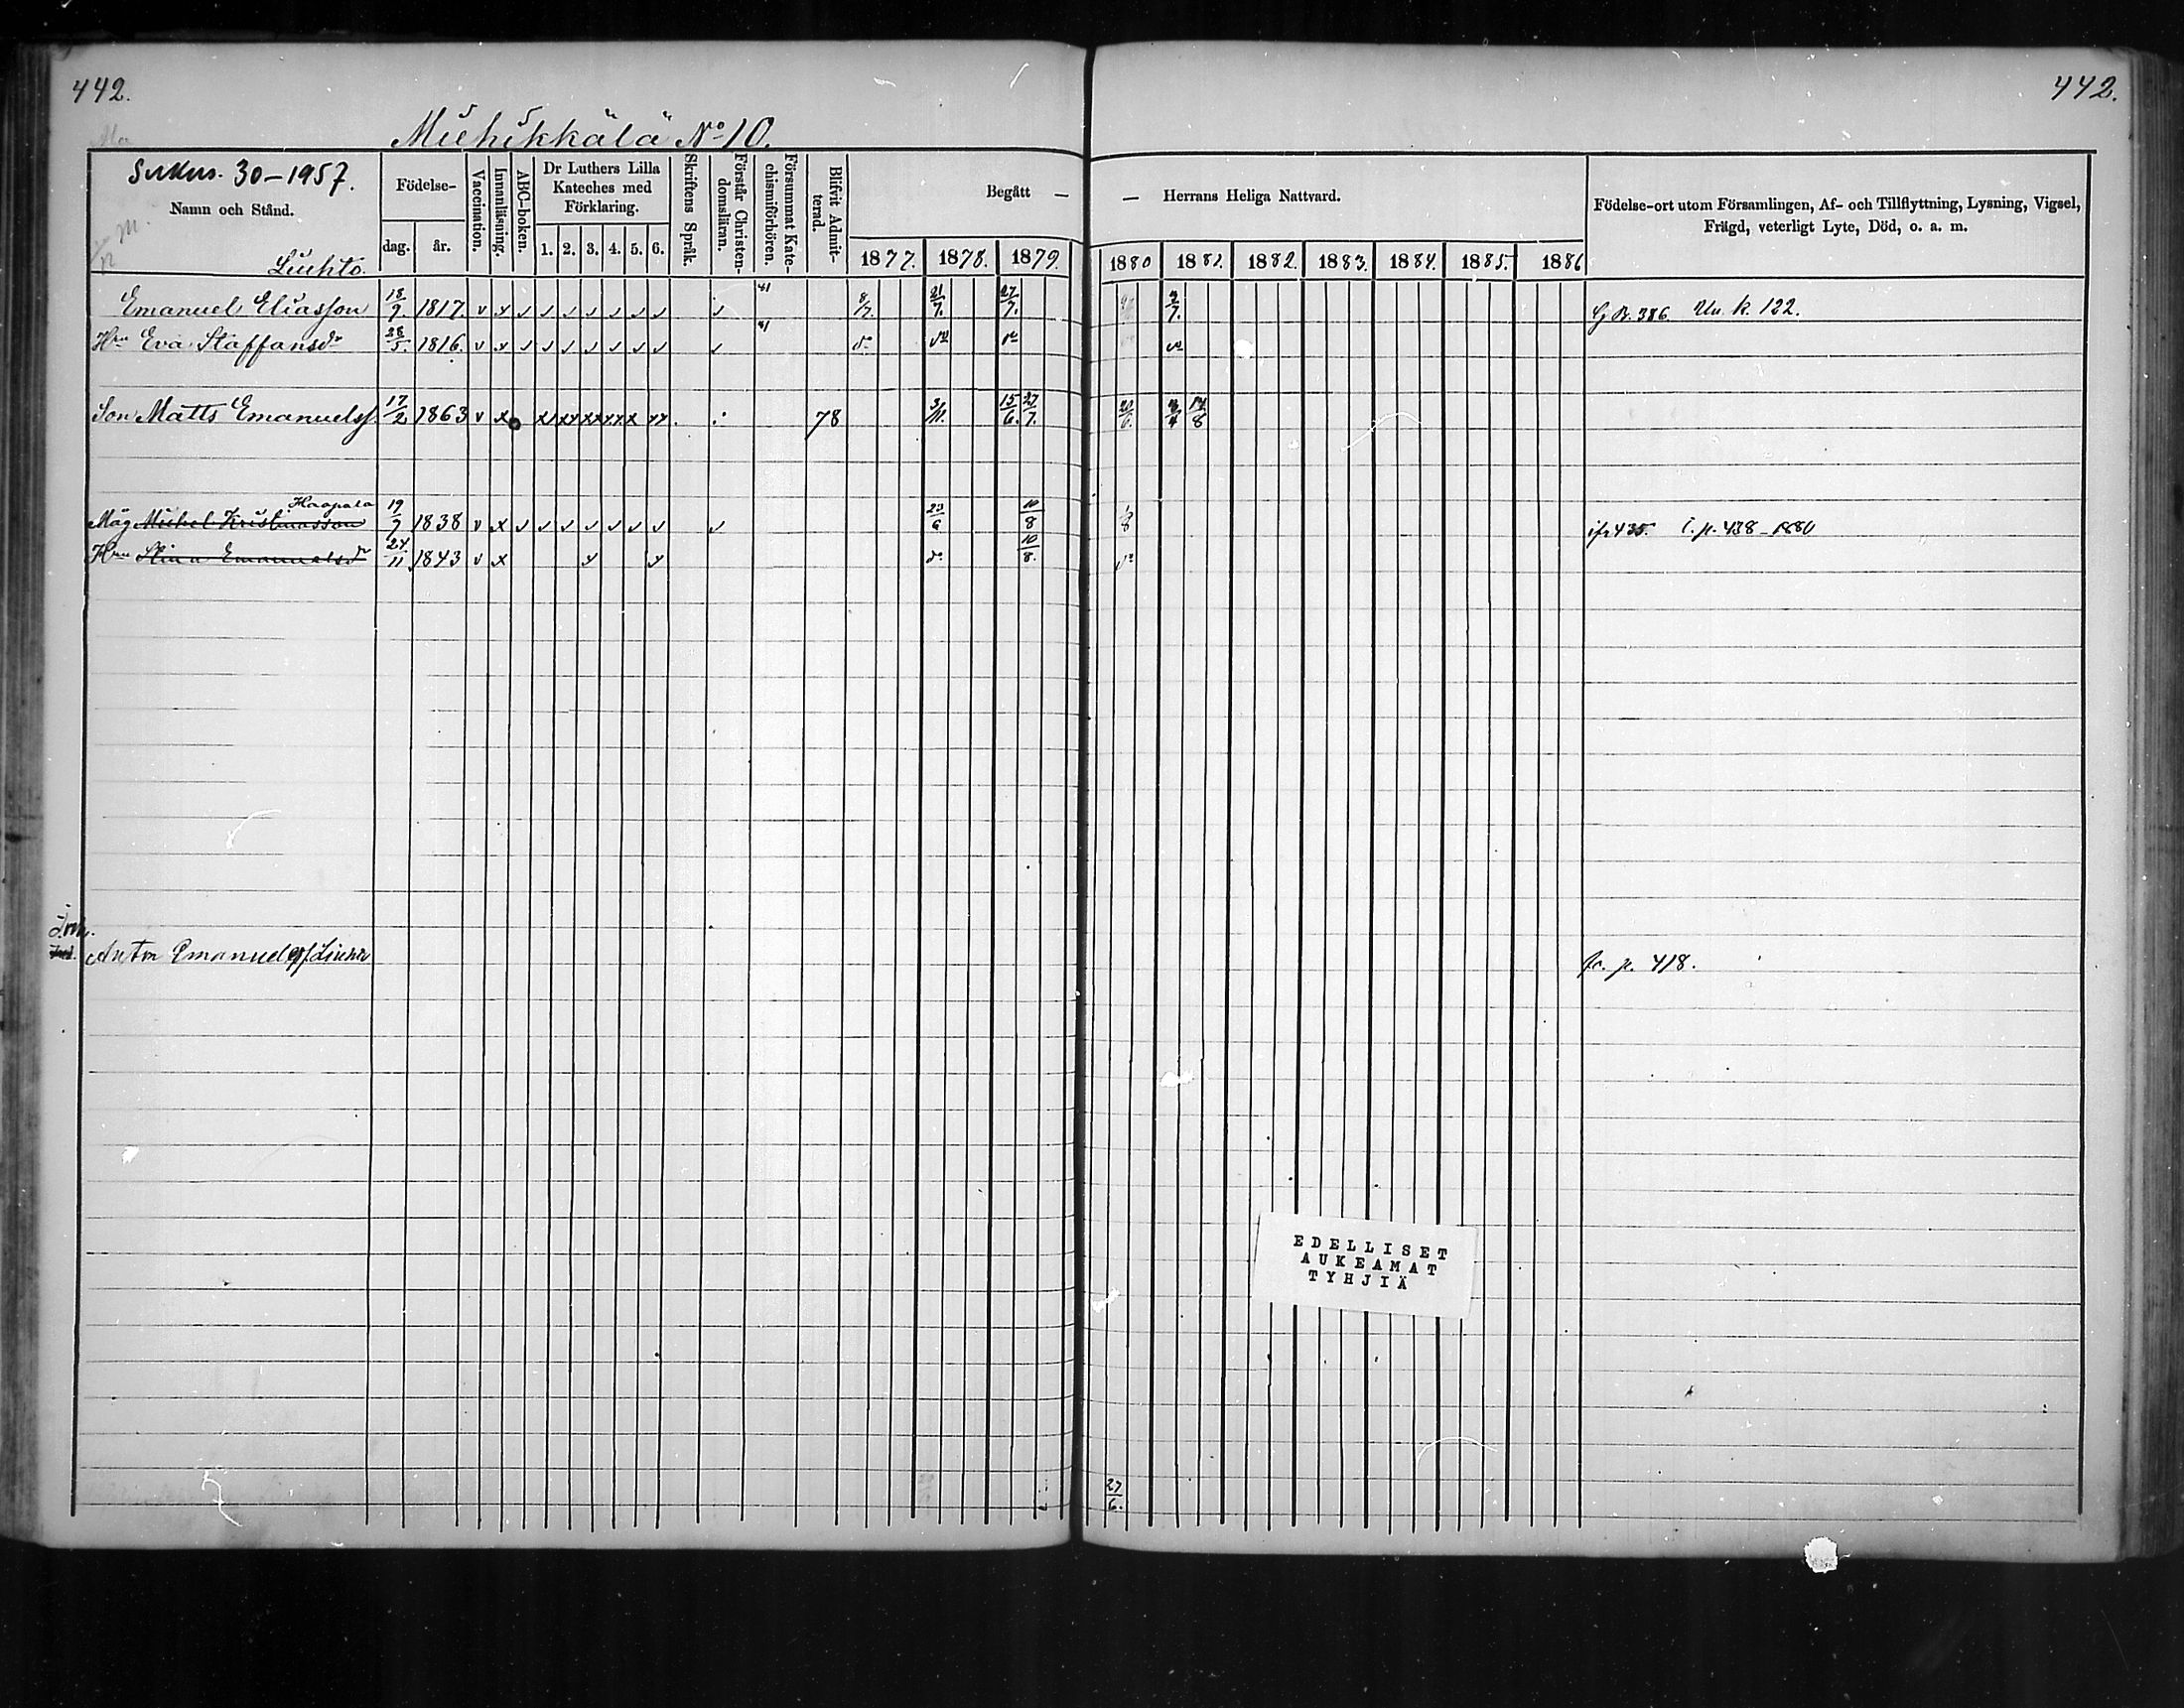 442.
442.
Miehikkälä No 10.
Sukus. 30-1957.
Namn och Stånd.
Födelse-
dag. år.
Vaccination.
Innanläsning.
ABC-boken.
Dr Luthers Lilla Kateches med Förklaring.
1. 2. 3. 4. 5. 6.
Skriftens Språk.
Förstår Christendomsläran.
Försummat Katechismiförhören.
Blifvit Admitterad.
Begått — — Herrans Heliga Nattvard.
1877. 1878. 1879. 1880 1881. 1882. 1883. 1884. 1885. 1886
Födelse-ort utom Församlingen, Af- och Tillflyttning, Lysning, Vigsel,
Frägd, veterligt Lyte, Död, o. a. m.
Liuhto.
Emanuel Eliasson 18/9 1817. v x 8/7. 21/7. 27/7. 7/7. 386. k. 122.
Hru Eva Staffansdr 28/5. 1816. v x do do do do
Son Matts Emanuelss. 17/2 1863 v x 78 3/11. 15/6. 27/7. 14/8
Haapala
Måg Michel Kristiansson 19/7 1838 v x 23/6 10/8 435. i. p. 438-1880
Hru Stina Emanuelsdr 24/11 1843 v x do 10/8. do
Anton Emanuelss Liuhto fr. p. 418.
EDELLISET
AUKEAMAT
TYHJIÄ
27/6.